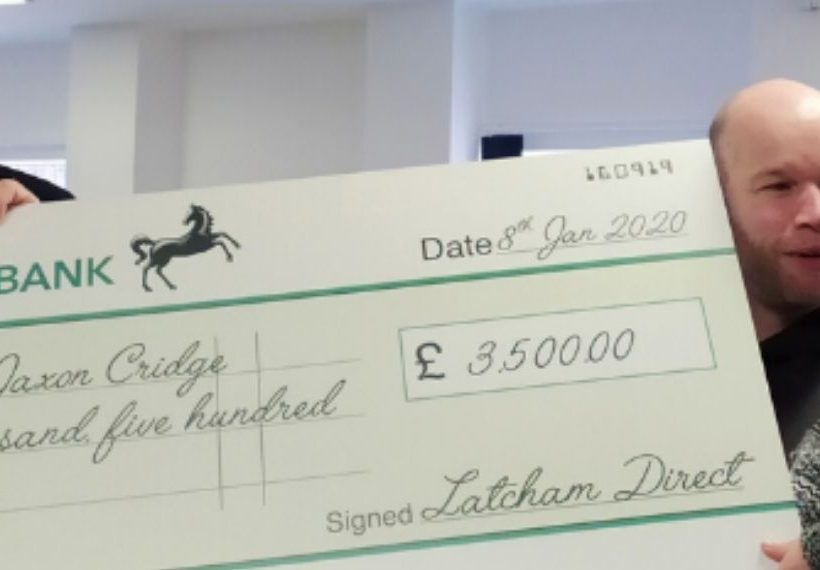 160919
BANK
Date 8th Jan 2020
Jaxon Cridge
£ 3,500.00
sand, five hundred
Signed Latcham Direct